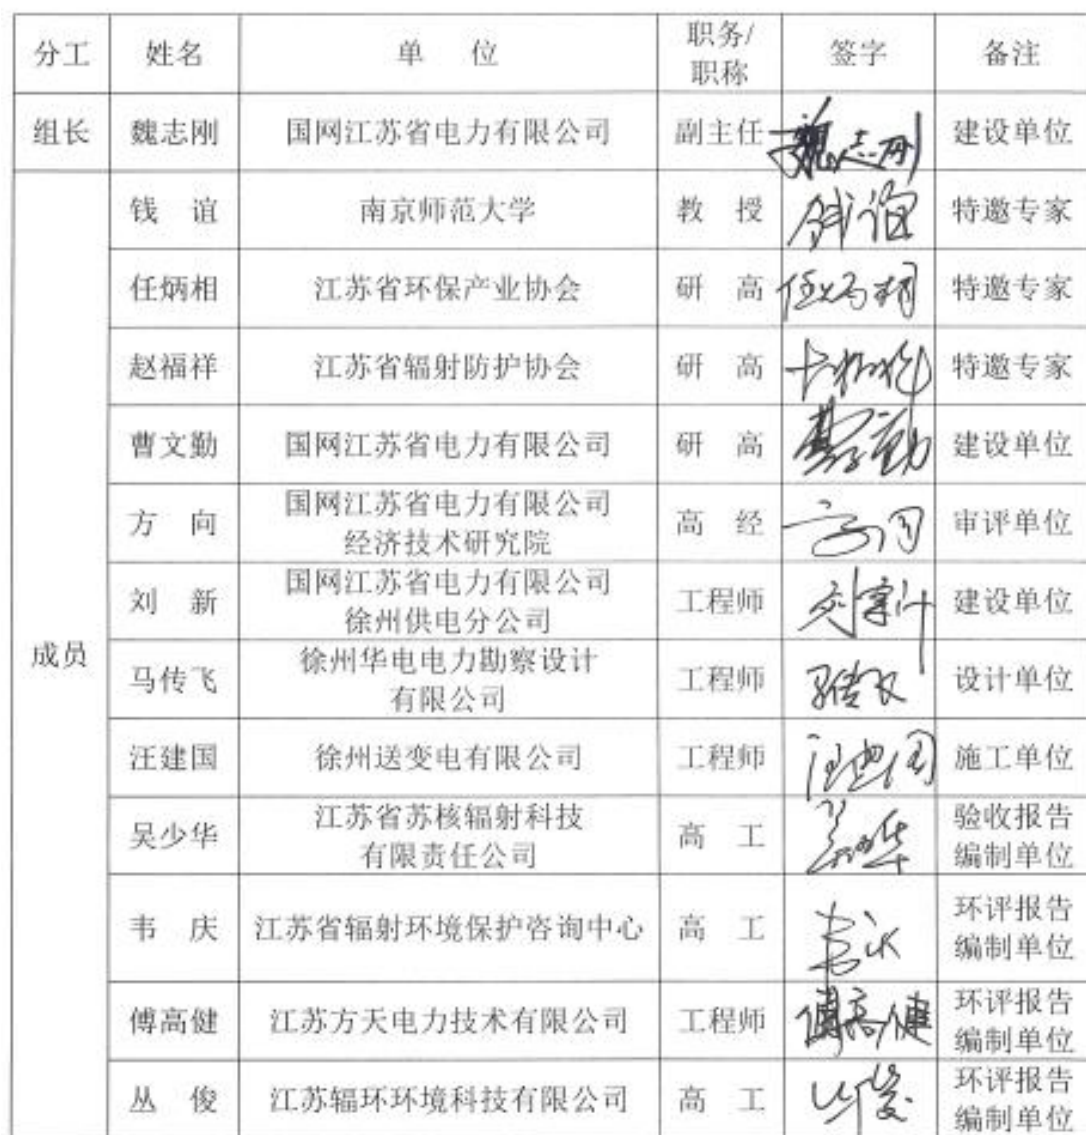 分工 姓名 单 位 职务/职称 签字 备注
组长 魏志刚 国网江苏省电力有限公司 副主任 魏志刚 建设单位
成员
钱 谊 南京师范大学 教 授 钱谊 特邀专家
任炳相 江苏省环保产业协会 研 高 任炳相 特邀专家
赵福祥 江苏省辐射防护协会 研 高 特邀专家
曹文勤 国网江苏省电力有限公司 研 高 曹文勤 建设单位
方 向 国网江苏省电力有限公司经济技术研究院 高 经 方向 审评单位
刘 新 国网江苏省电力有限公司徐州供电分公司 工程师 建设单位
马传飞 徐州华电电力勘察设计有限公司 工程师 马传飞 设计单位
汪建国 徐州送变电有限公司 工程师 汪建国 施工单位
吴少华 江苏省苏核辐射科技有限责任公司 高 工 吴少华 验收报告编制单位
韦 庆 江苏省辐射环境保护咨询中心 高 工 环评报告编制单位
傅高健 江苏方天电力技术有限公司 工程师 傅高健 环评报告编制单位
丛 俊 江苏辐环环境科技有限公司 高 工 丛俊 环评报告编制单位